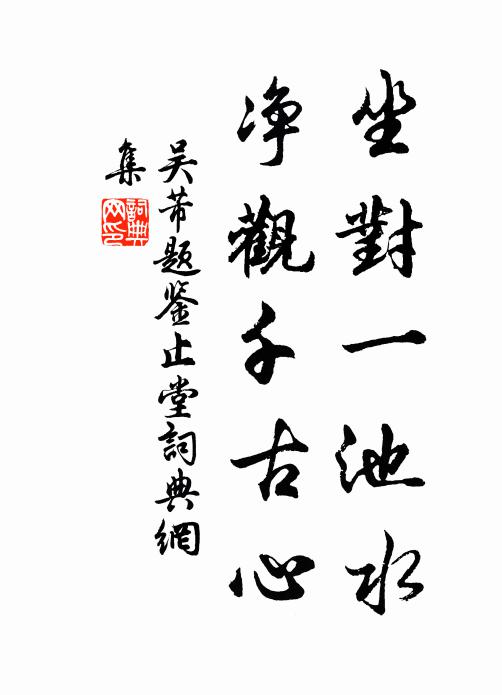 坐對一池水
净觀千古心
吴芾題鉴止堂詞典網
集
詞典網印